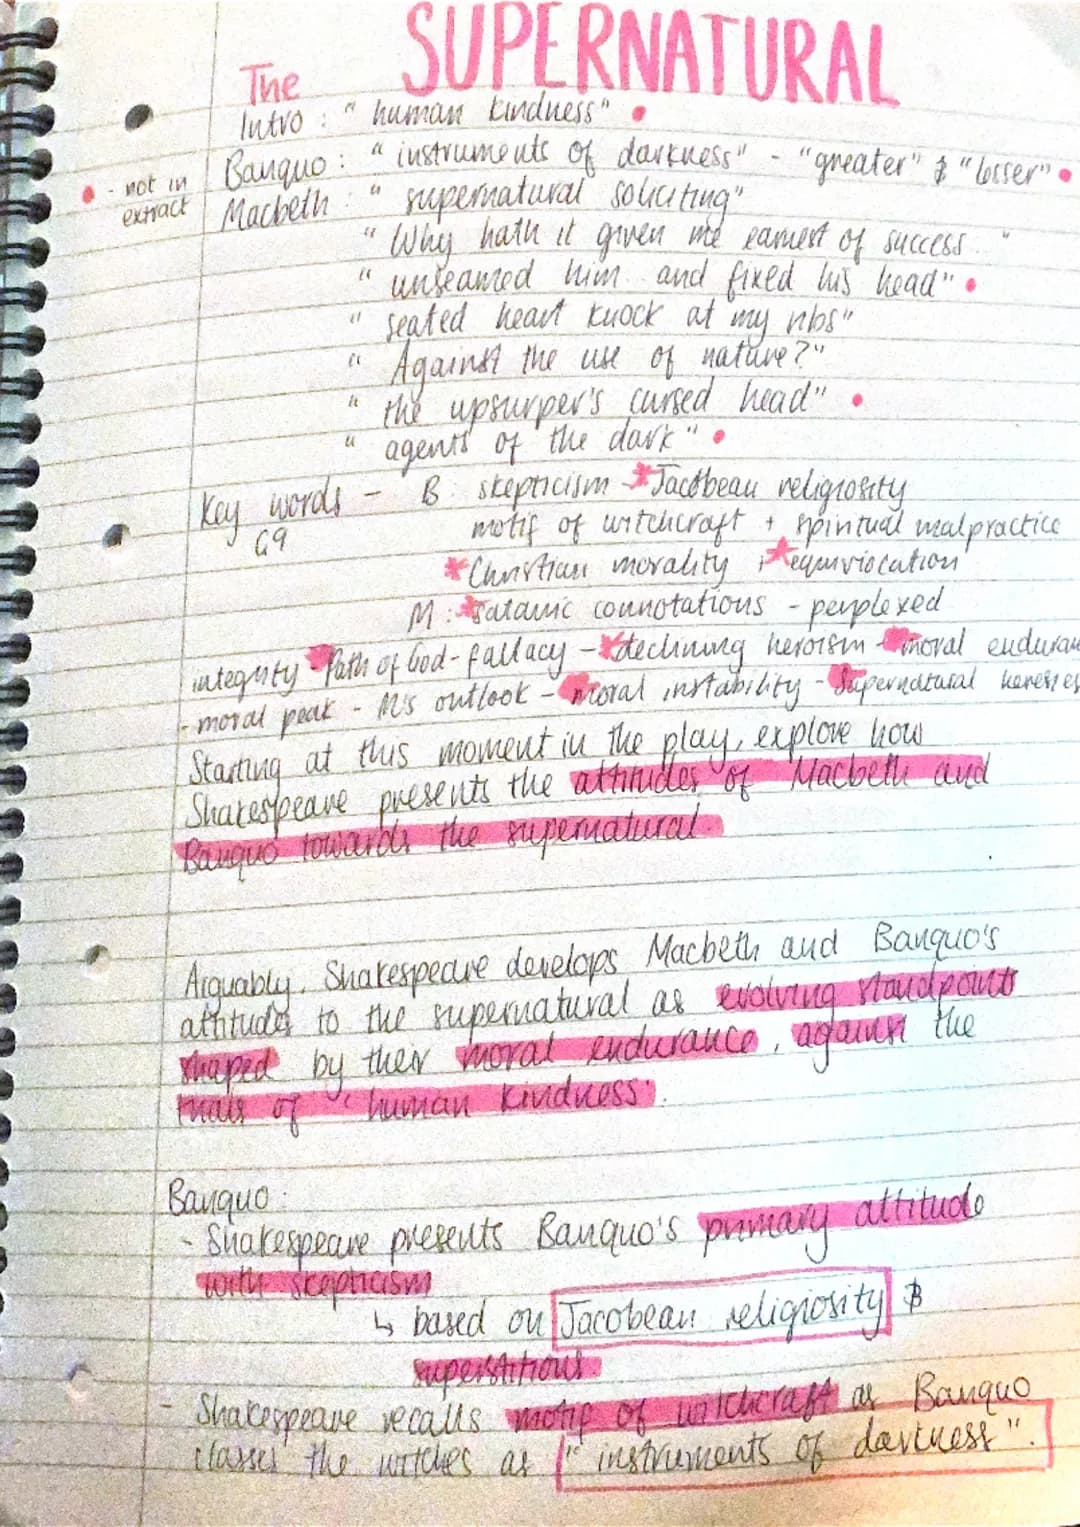 The SUPERNATURAL
Intro : "human kindness" •
Banquo : "instruments of darkness" - "greater" & "lesser" •
• - not in extract
Macbeth : "supernatural soliciting"
"Why hath it given me earnest of success..."
"unseamed him.. and fixed his head" •
"seated heart knock at my ribs"
"Against the use of nature?"
"the upsurper's cursed head" •
"agents of the dark" •
Key words - B : skepticism * Jacobean religiosity
G9 motif of witchcraft + spiritual malpractice
* Christian morality , * equiviocation
M : * satanic connotations - perplexed
integrity * Path of God - fallacy - * declining heroism - * moral enduran
- moral peak - M's outlook - * moral instability - * supernatural heresies
Starting at this moment in the play, explore how
Shakespeare presents the attitudes of Macbeth and
Banquo towards the supernatural.
Arguably, Shakespeare develops Macbeth and Banquo's
attitudes to the supernatural as evolving standpoints
shaped by their moral endurance, against the
trials of 'human kindness'.
Banquo :
- Shakespeare presents Banquo's primary attitude
with skepticism
↳ based on Jacobean religiosity &
superstitions.
- Shakespeare recalls motif of witchcraft as Banquo
classes the witches as "instruments of darkness".